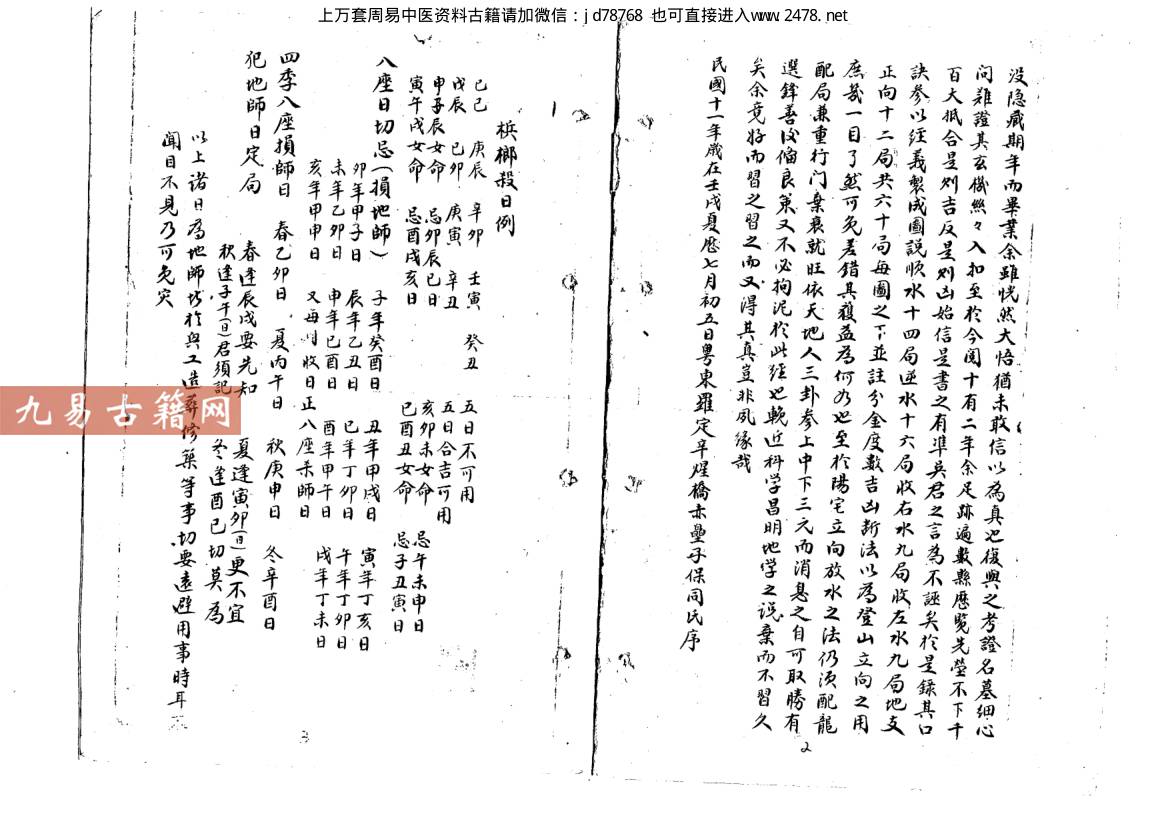 上万套周易中医资料古籍请加微信：jd78768 也可直接进入www.2478.net
没隐藏期年而畢業余雖恍然大悟猶未敢信以為真也復與之考證名墓細心
问難證其玄機絲々入扣至於今閱十有二年余足跡遍數縣歷覧先塋不下千
百大抵合是則吉反是則凶始信是書之有準吳君之言為不誣矣於是錄其口
訣參以經義製成圖説順水十四局逆水十六局收右水九局收左水九局地支
正向十二局共六十局每圖之下並註分金度数吉凶断法以為登山立向之用
庶幾一目了然可免差錯其獲益為何如也至於陽宅立向放水之法仍須配龍
配局兼重行门棄衰就旺依天地人三卦參上中下三元而消息之自可取勝有
選鋒善後偹良策又不必拘泥於此經也輓近科学昌明地学之説棄而不習久
矣余竟好而習之習之而又得其真豈非夙缘哉
民國十一年歲在壬戌夏歷七月初五日粤東羅定辛煋橋赤壘子保同氏序
2
梹榔殺日例
己巳 庚辰 辛卯 壬寅 癸丑 五日不可用
戊辰 己卯 庚寅 辛丑 五日合吉可用
申子辰女命 忌卯辰巳日 亥卯未女命 忌午未申日
寅午戌女命 忌酉戌亥日 巳酉丑女命 忌子丑寅日
八座日切忌(損地師) 子年癸酉日 丑年甲戌日 寅年丁亥日
卯年甲子日 辰年乙丑日 巳年丁卯日 午年丁卯日
未年乙卯日 申年己酉日 酉年甲午日 戌年丁未日
亥年甲申日 又每月收日正八座未師日
四季八座損師日 春乙卯日 夏丙午日 秋庚申日 冬辛酉日
犯地師日定局 春逢辰戌要先知 夏逢寅卯(日)更不宜
秋逢子午(日)君須記 冬逢酉巳切莫為
以上诸日為地師坟於與工造葬修築等事切要遠避用事時耳
闻目不見乃可免灾
3
九易古籍网